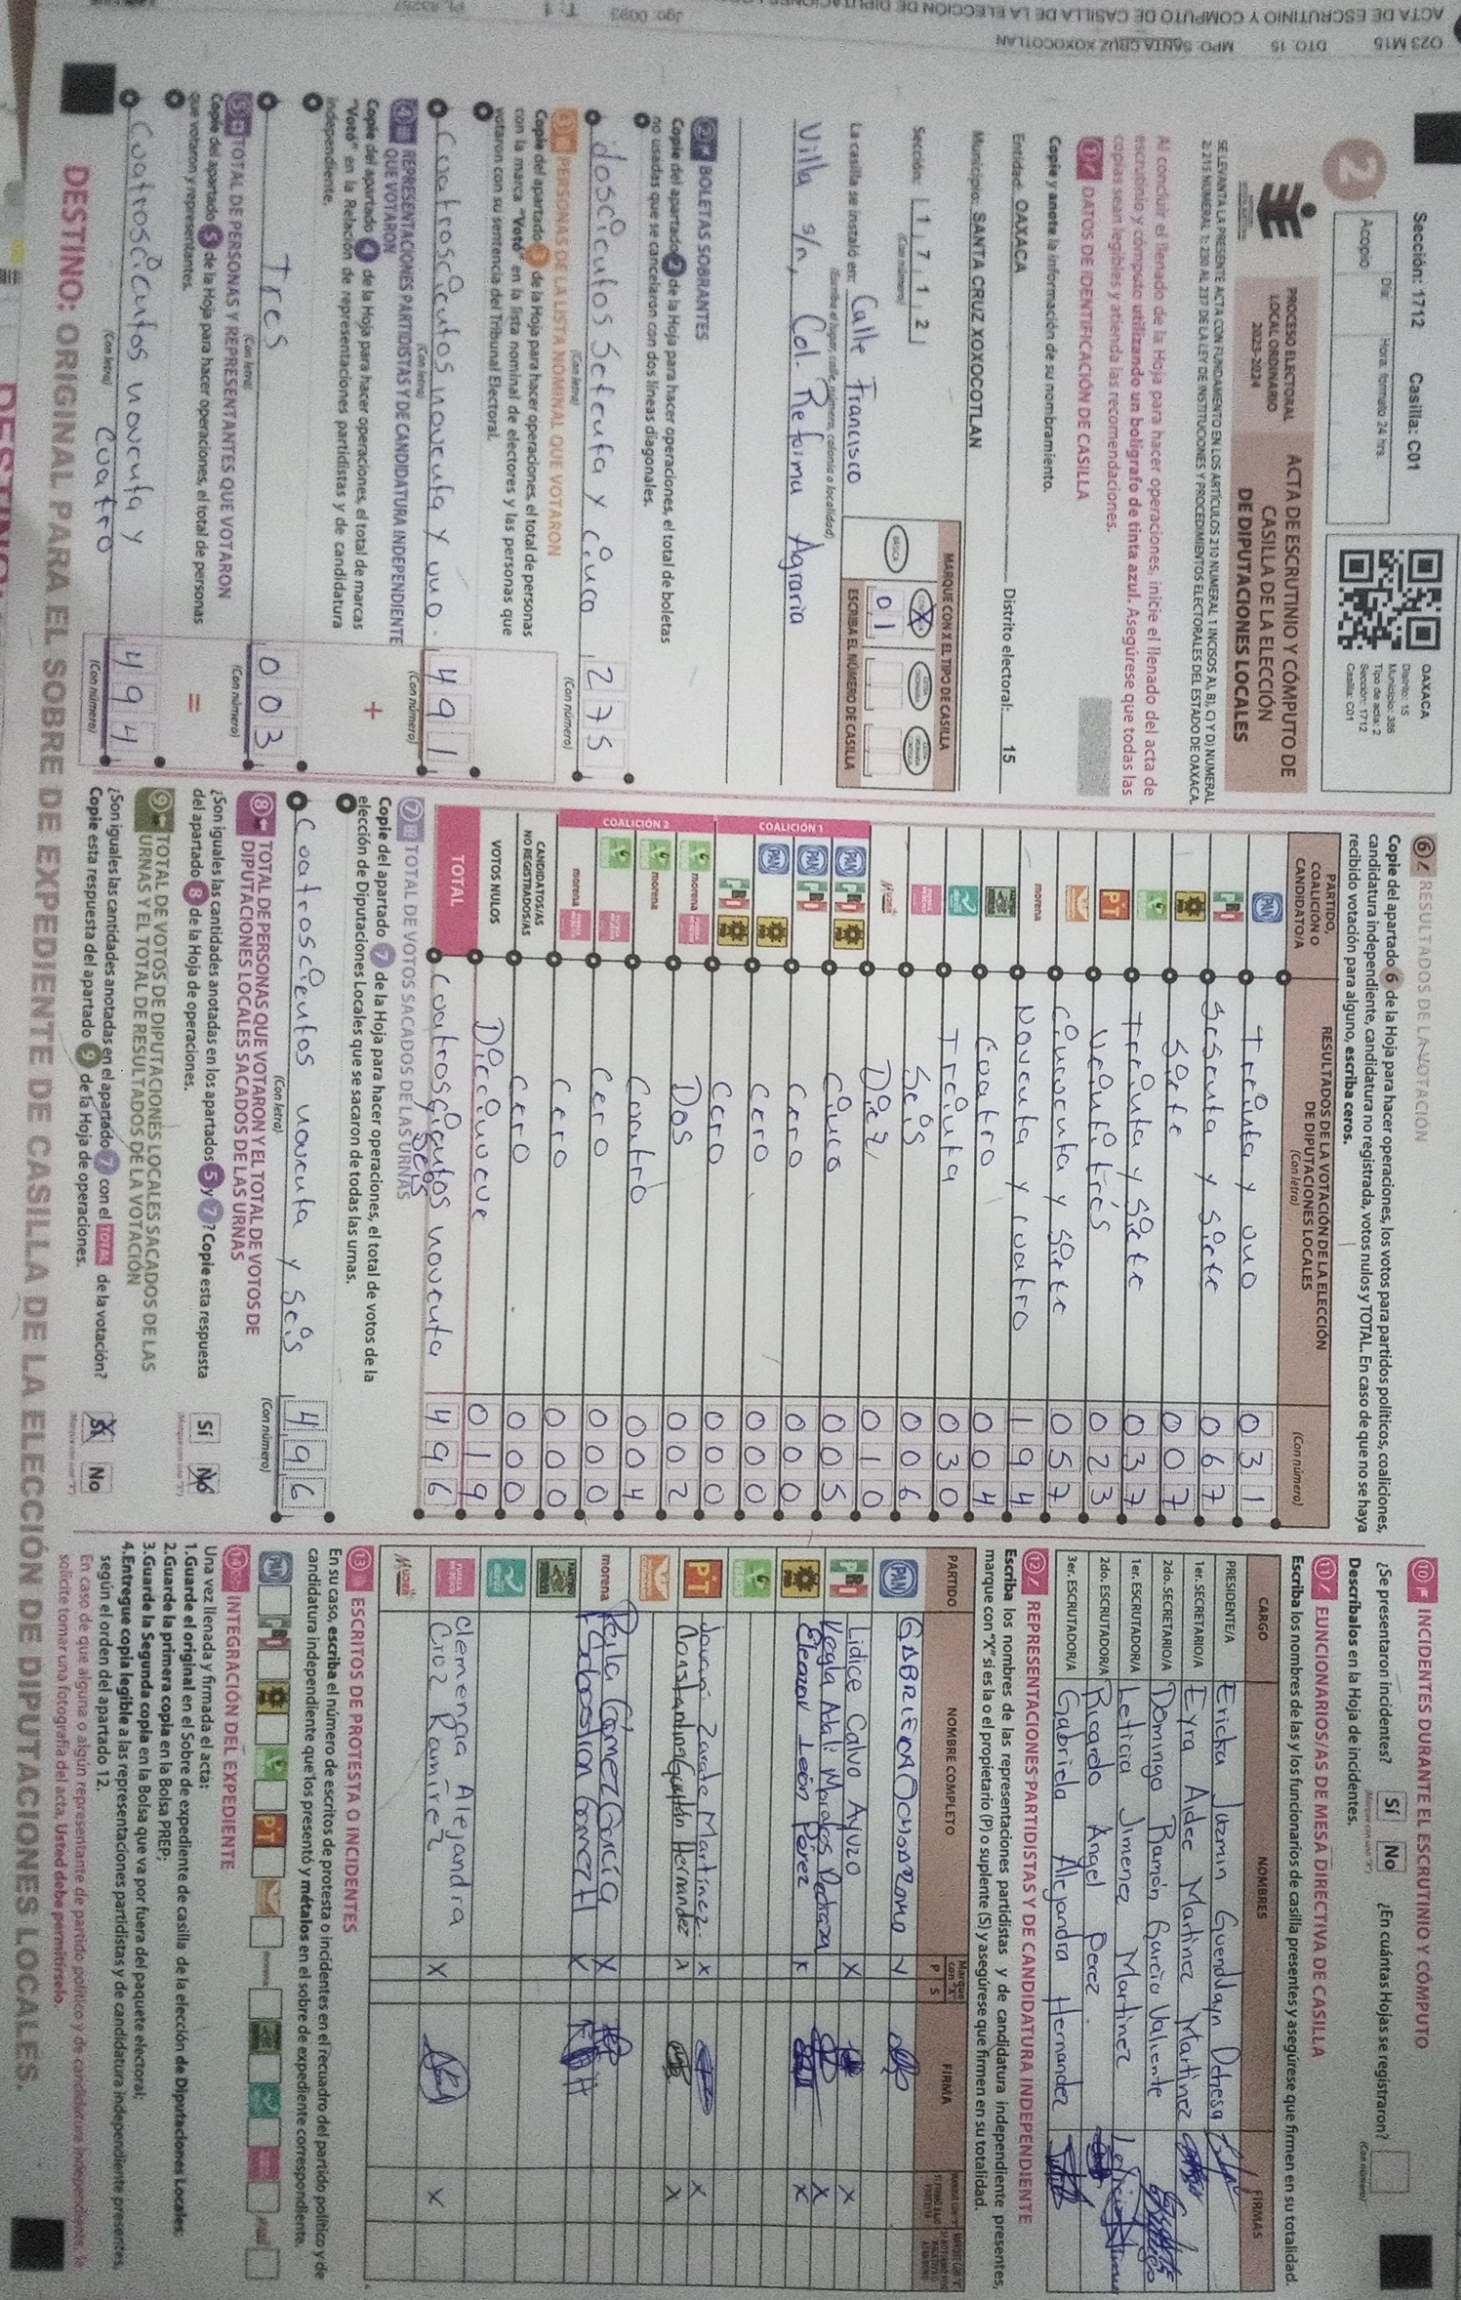 023 M15 DTO: 15 MPO: SANTA CRUZ XOXOCOTLAN
ACTA DE ESCRUTINIO Y COMPUTO DE CASILLA DE LA ELECCIÓN DE DIPUTACIONES
Jgo: 0093 T: 1
Sección: 1712 Casilla: C01
Día: Hora: formato 24 hrs.
Acopio
2
OAXACA
Distrito: 15
Municipio: 386
Tipo de acta: 2
Sección: 1712
Casilla: C01
PROCESO ELECTORAL
LOCAL ORDINARIO
2023-2024
ACTA DE ESCRUTINIO Y CÓMPUTO DE
CASILLA DE LA ELECCIÓN
DE DIPUTACIONES LOCALES
SE LEVANTA LA PRESENTE ACTA CON FUNDAMENTO EN LOS ARTÍCULOS 210 NUMERAL 1 INCISOS A), B), C) Y D) NUMERAL
2; 215 NUMERAL 1; 230 AL 237 DE LA LEY DE INSTITUCIONES Y PROCEDIMIENTOS ELECTORALES DEL ESTADO DE OAXACA.
Al concluir el llenado de la Hoja para hacer operaciones, inicie el llenado del acta de
escrutinio y cómputo utilizando un bolígrafo de tinta azul. Asegúrese que todas las
copias sean legibles y atienda las recomendaciones.
1 DATOS DE IDENTIFICACIÓN DE CASILLA
Copie y anote la información de su nombramiento.
Entidad: OAXACA Distrito electoral: 15
Municipio: SANTA CRUZ XOXOCOTLAN
Sección: 1 7 1 2
(Con número)
MARQUE CON X EL TIPO DE CASILLA
BÁSICA X
ESCRIBA EL NÚMERO DE CASILLA
0 1
La casilla se instaló en: Calle Francisco
(Escriba el lugar, calle, número, colonia o localidad)
Villa s/n, Col. Reforma Agraria
2 BOLETAS SOBRANTES
Copie del apartado 2 de la Hoja para hacer operaciones, el total de boletas
no usadas que se cancelaron con dos líneas diagonales.
doscientos setenta y cinco 2 7 5
(Con letra) (Con número)
3 PERSONAS DE LA LISTA NOMINAL QUE VOTARON
Copie del apartado 3 de la Hoja para hacer operaciones, el total de personas
con la marca "Votó" en la lista nominal de electores y las personas que
votaron con su sentencia del Tribunal Electoral.
Cuatroscientos noventa y uno. 4 9 1
(Con letra) (Con número)
4 REPRESENTACIONES PARTIDISTAS Y DE CANDIDATURA INDEPENDIENTE
QUE VOTARON
Copie del apartado 4 de la Hoja para hacer operaciones, el total de marcas
"Votó" en la Relación de representaciones partidistas y de candidatura
independiente.
+
Tres 0 0 3
(Con letra) (Con número)
5 TOTAL DE PERSONAS Y REPRESENTANTES QUE VOTARON
Copie del apartado 5 de la Hoja para hacer operaciones, el total de personas
que votaron y representantes.
=
Coatroscientos noventa y
cuatro 4 9 4
(Con letra) (Con número)
6 RESULTADOS DE LA VOTACIÓN
Copie del apartado 6 de la Hoja para hacer operaciones, los votos para partidos políticos, coaliciones,
candidatura independiente, candidatura no registrada, votos nulos y TOTAL. En caso de que no se haya
recibido votación para alguno, escriba ceros.
PARTIDO, COALICIÓN O CANDIDATO/A
RESULTADOS DE LA VOTACIÓN DE LA ELECCIÓN DE DIPUTACIONES LOCALES
(Con letra) (Con número)
PAN Treinta y uno 0 3 1
PRI Sesenta y siete 0 6 7
PRD Siete 0 0 7
Treinta y siete 0 3 7
PT Veinti trés 0 2 3
Cincuenta y siete 0 5 7
morena Noventa y cuatro 1 9 4
Cuatro 0 0 4
Treinta 0 3 0
Seis 0 0 6
Mujer Diez 0 1 0
COALICIÓN 1
PAN PRI PRD Cinco 0 0 5
PAN PRI Cero 0 0 0
PAN PRD Cero 0 0 0
PRI PRD Cero 0 0 0
COALICIÓN 2
morena Dos 0 0 2
morena Cuatro 0 0 4
Cero 0 0 0
morena Cero 0 0 0
CANDIDATOS/AS NO REGISTRADOS/AS Cero 0 0 0
VOTOS NULOS Diecinueve 0 1 9
TOTAL Coatroscientos noventa seis 4 9 6
7 TOTAL DE VOTOS SACADOS DE LAS URNAS
Copie del apartado 7 de la Hoja para hacer operaciones, el total de votos de la
elección de Diputaciones Locales que se sacaron de todas las urnas.
Coatroscientos noventa y seis 4 9 6
(Con letra) (Con número)
8 TOTAL DE PERSONAS QUE VOTARON Y EL TOTAL DE VOTOS DE
DIPUTACIONES LOCALES SACADOS DE LAS URNAS
¿Son iguales las cantidades anotadas en los apartados 5 y 7? Copie esta respuesta
del apartado 8 de la Hoja de operaciones. Sí No
9 TOTAL DE VOTOS DE DIPUTACIONES LOCALES SACADOS DE LAS
URNAS Y EL TOTAL DE RESULTADOS DE LA VOTACIÓN
¿Son iguales las cantidades anotadas en el apartado 7 con el TOTAL de la votación?
Copie esta respuesta del apartado 9 de la Hoja de operaciones. Sí No
10 INCIDENTES DURANTE EL ESCRUTINIO Y CÓMPUTO
¿Se presentaron incidentes? Sí No ¿En cuántas Hojas se registraron?
(Con número)
Descríbalos en la Hoja de incidentes.
11 FUNCIONARIOS/AS DE MESA DIRECTIVA DE CASILLA
Escriba los nombres de las y los funcionarios de casilla presentes y asegúrese que firmen en su totalidad.
CARGO NOMBRES FIRMAS
PRESIDENTE/A Ericka Jazmin Guendulayn Dehesa
1er. SECRETARIO/A Eyra Aidee Martinez Martinez
2do. SECRETARIO/A Domingo Ramón García Valiente
1er. ESCRUTADOR/A Leticia Jimenez Martinez
2do. ESCRUTADOR/A Ricardo Ángel Perez
3er. ESCRUTADOR/A Gabriela Alejandra Hernandez
12 REPRESENTACIONES PARTIDISTAS Y DE CANDIDATURA INDEPENDIENTE
Escriba los nombres de las representaciones partidistas y de candidatura independiente presentes,
marque con "X" si es la o el propietario (P) o suplente (S) y asegúrese que firmen en su totalidad.
PARTIDO NOMBRE COMPLETO Marque con "X" P S FIRMA
PAN
PRI Lidice Calvo Ayuzo X X
X
PRD Eleazar León Pérez X X
PT Jovani Zarate Martínez. X X
Constantino Hernandez X X
morena Perla Gómez García X
X
Clemencia Alejandra
Cruz Ramírez X X
Mujer
13 ESCRITOS DE PROTESTA O INCIDENTES
En su caso, escriba el número de escritos de protesta o incidentes en el recuadro del partido político y de
candidatura independiente que los presentó y métalos en el sobre de expediente correspondiente.
PAN PRI PRD PT morena
14 INTEGRACIÓN DEL EXPEDIENTE
Una vez llenada y firmada el acta:
1.Guarde el original en el Sobre de expediente de casilla de la elección de Diputaciones Locales;
2.Guarde la primera copia en la Bolsa PREP;
3.Guarde la Segunda copia en la Bolsa que va por fuera del paquete electoral;
4.Entregue copia legible a las representaciones partidistas y de candidatura independiente presentes,
según el orden del apartado 12.
En caso de que alguna o algún representante de partido político y de candidatura independiente, le
solicite tomar una fotografía del acta, Usted debe permitírselo.
DESTINO: ORIGINAL PARA EL SOBRE DE EXPEDIENTE DE CASILLA DE LA ELECCIÓN DE DIPUTACIONES LOCALES.